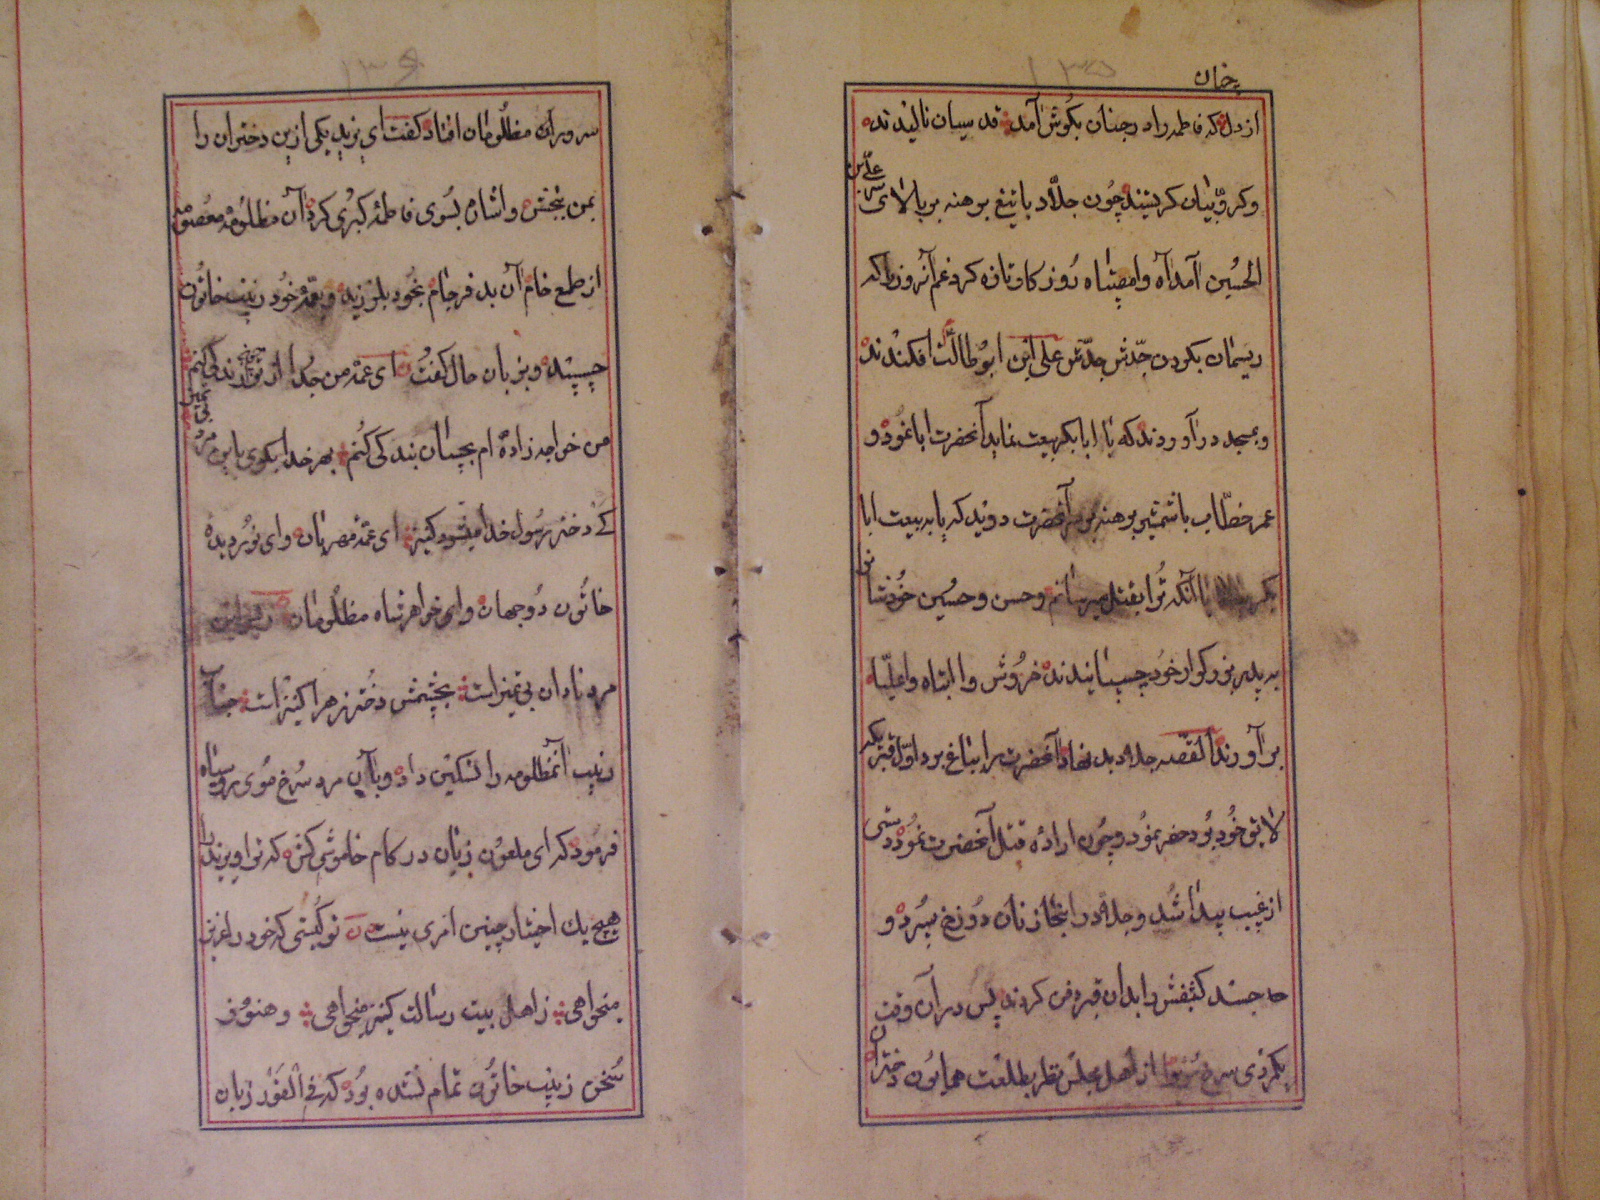 ۱۳۵
چنان
از دل که فاطمه را در جنان بگوش آمد قدسیان نالیدند
و کروبیان کریستند چون جلاد با تیغ برهنه بر بالای سر علی بن
الحسین آمد آه وامصیبتاه روزگار تازه کرد غم آنروز را که
ریسمان بکردن جدش علی ابن ابوطالب افکندند
و بمسجد در آوردند که با ابابکر بیعت نماید آنحضرت ابا نمود و
عمر خطاب با شمشیر برهنه بر سر آنحضرت دوید که یا به بیعت ابا
بکر یا آنکه ترا بقتل میرسانم و حسن و حسین خود را
به پدر بزرگوار خود چسپانیدند خروش وا ابتاه واعلیاه
بر آوردند القصه جلاد بد نهاد آنحضرت را بباغ برد اول قبریکه
لایق خود بود حفر نمود و چون اراده قتل آنحضرت نمود دستی
از غیب پیدا شد و جلاد را بخازنان دوزخ سپرد و
جسد کثیفش را بدان قبر دفن کردند پس در آن وقت
یکمردی سرخ مو از اهل مجلس نظر بطلعت همایون دختران
۱۳۶
سروران مظلومان افتاد کفت ای یزید یکی ازین دختران را
بمن ببخش و اشاره بسوی فاطمه کبری کرد آن مظلومه معصومه
از طمع خام آن بد فرجام بخود بلرزید و بعمه خود زینب خاتون
چسپید و بزبان حال کفت ای عمه من جدا از تو چون زندکی کنم
من خواجه زاده ام بچسان بندکی کنم بهر خدا بکوی باین مرد بی تمیز
کے دختر رسول خدا میشود کنیز ای عمه مهربان و ای نور دیده
خاتون دوجهان و ای خواهر شاه مظلومان
مرد نادان بی تمیز است بچشمش دختر زهرا کنیز است جناب
زینب آنمظلومه را تسکین داد و بآن مرد سرخ موی روسیاه
فرمود که ای ملعون زبان در کام خاموشی کش که ترا و یزید را
هیچ یك اختیار چنین امری نیست تو کیستی که خود را عزیز
میخواهی ز اهل بیت رسالت کنیز میخواهی و هنوز
سخن زینب خاتون تمام نشده بود که فی الفور زبان